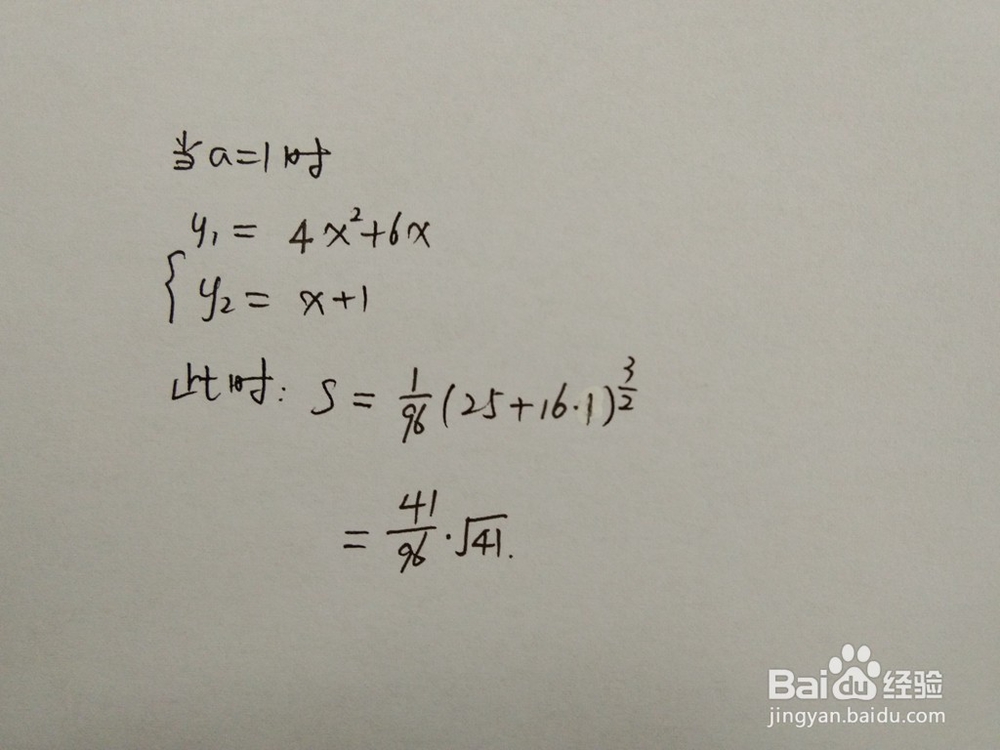 当a=1时
y₁ = 4x²+6x
y₂ = x+1
此时: S = 1/96 (25+16·1)^(3/2)
= 41/96 · √41.
Baidu 经验
jingyan.baidu.com